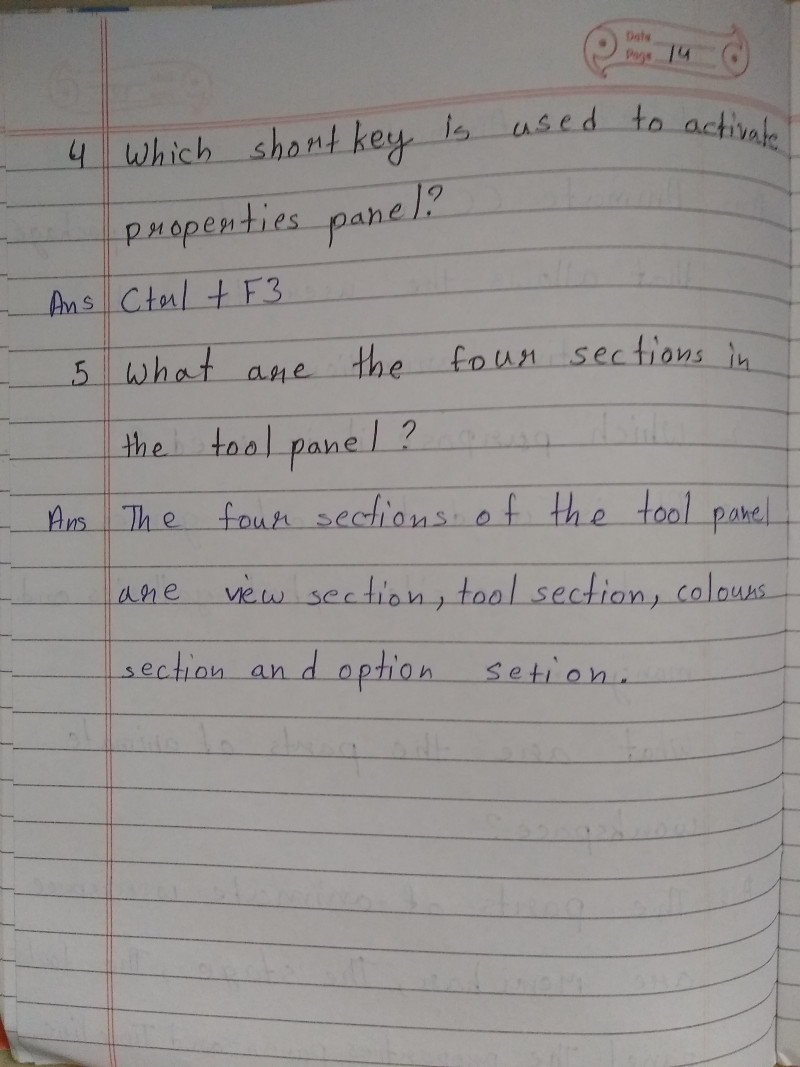 Date
Page 14
4 Which short key is used to activate
properties panel?
Ans Ctrl + F3
5 What are the four sections in
the tool panel?
Ans The four sections of the tool panel
are view section, tool section, colours
section and option setion.